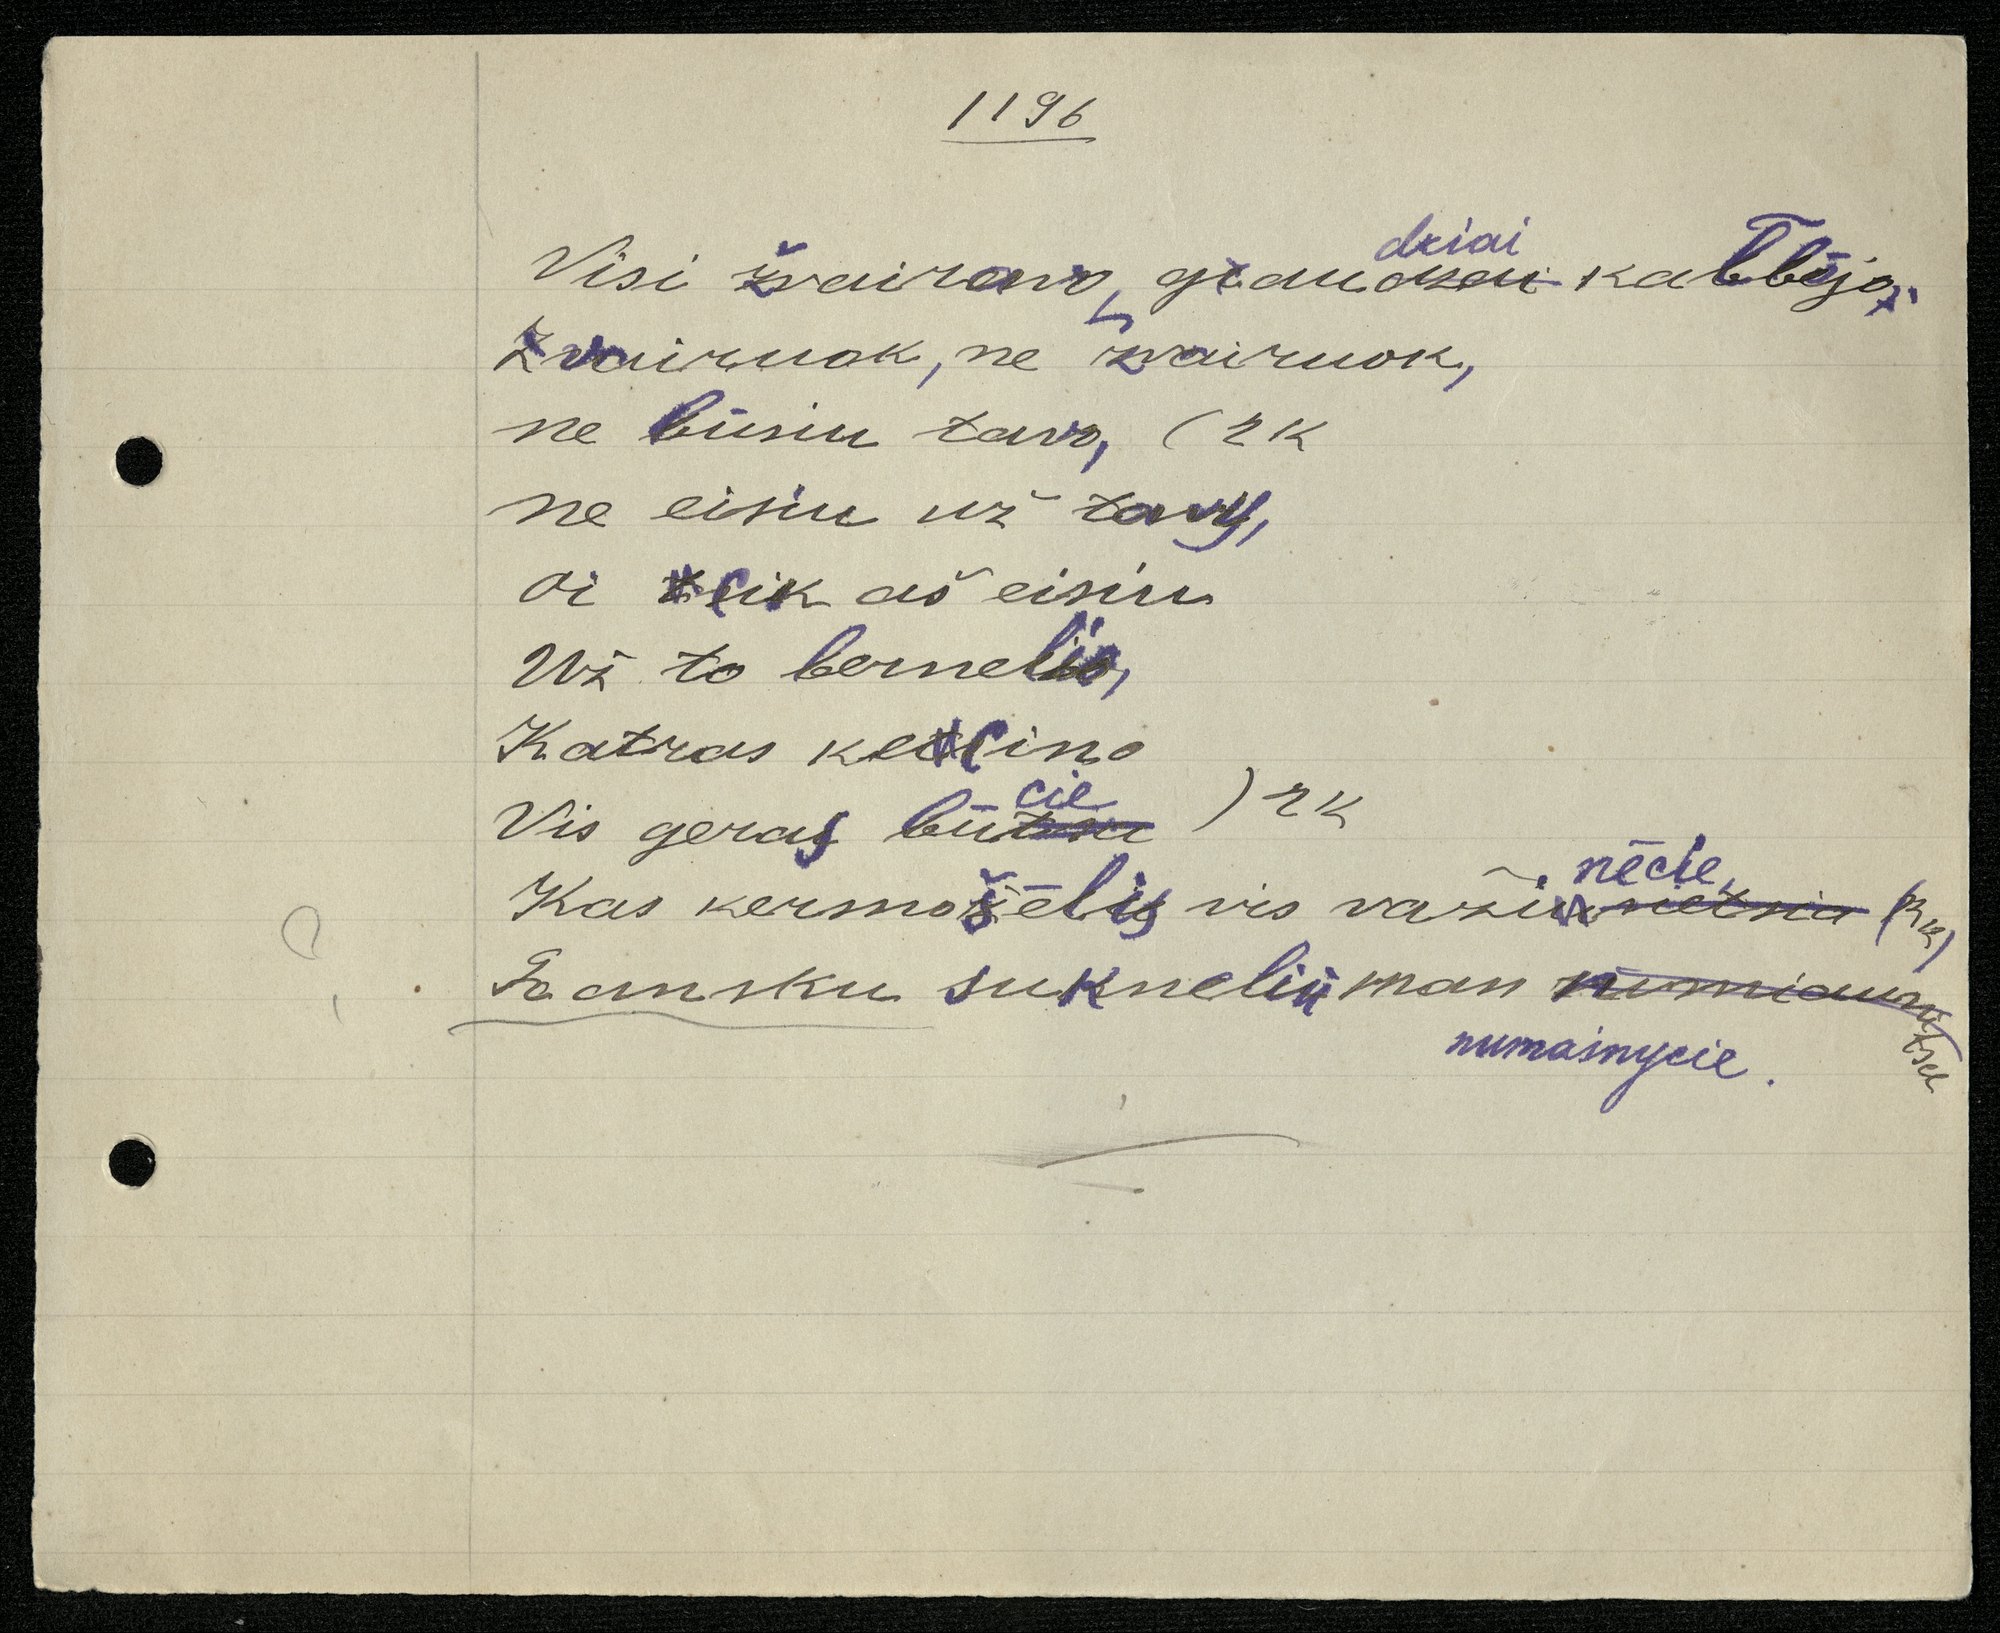 1196
Visi žvairavo, graudziai kalbėjo,
Žvairuok, ne žvairuok,
ne būsiu tavo, (2k
ne eisiu už tavy,
oi cik aš eisiu
Už to bernelio,
Katras kecino
Vis geras būcie )2k
Kas kermošėlis vis važinėcie (2k)
suknelių man
numainycie.